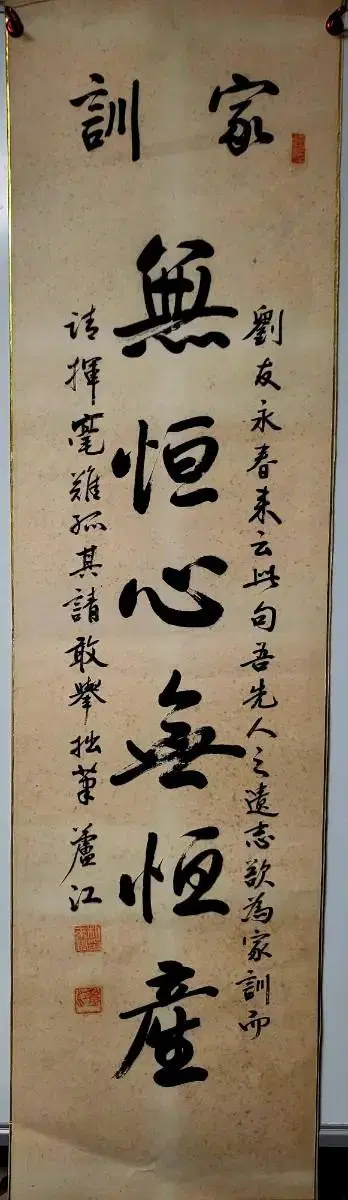 家訓
劉友永春来云此句吾先人之遠志欲為家訓而
無恒心無恒産
請揮毫難孤其請敢擧拙筆 蘆江